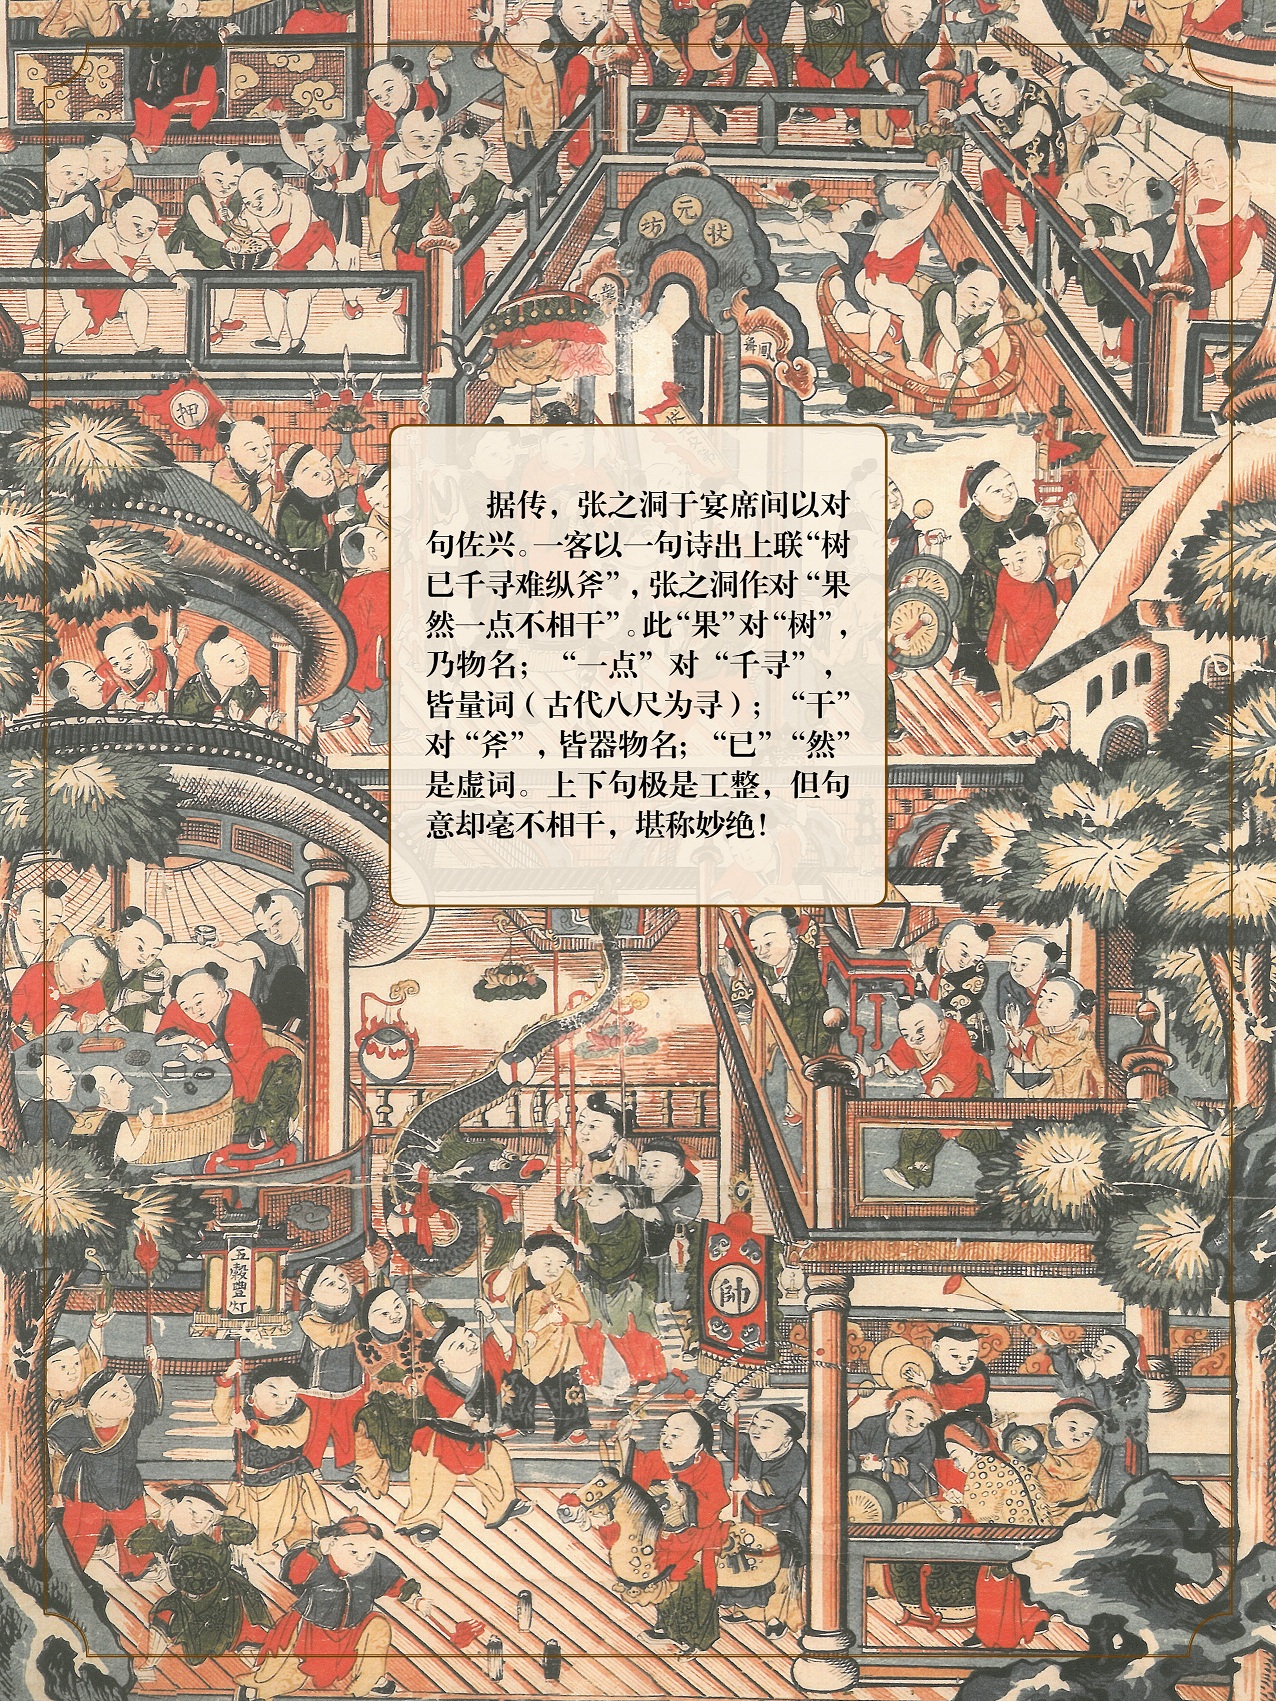 状元坊
鳳舞
押
据传，张之洞于宴席间以对
句佐兴。一客以一句诗出上联“树
已千寻难纵斧”，张之洞作对“果
然一点不相干”。此“果”对“树”，
乃物名；“一点”对“千寻”，
皆量词（古代八尺为寻）；“干”
对“斧”，皆器物名；“已”“然”
是虚词。上下句极是工整，但句
意却毫不相干，堪称妙绝！
五穀豐灯
帥